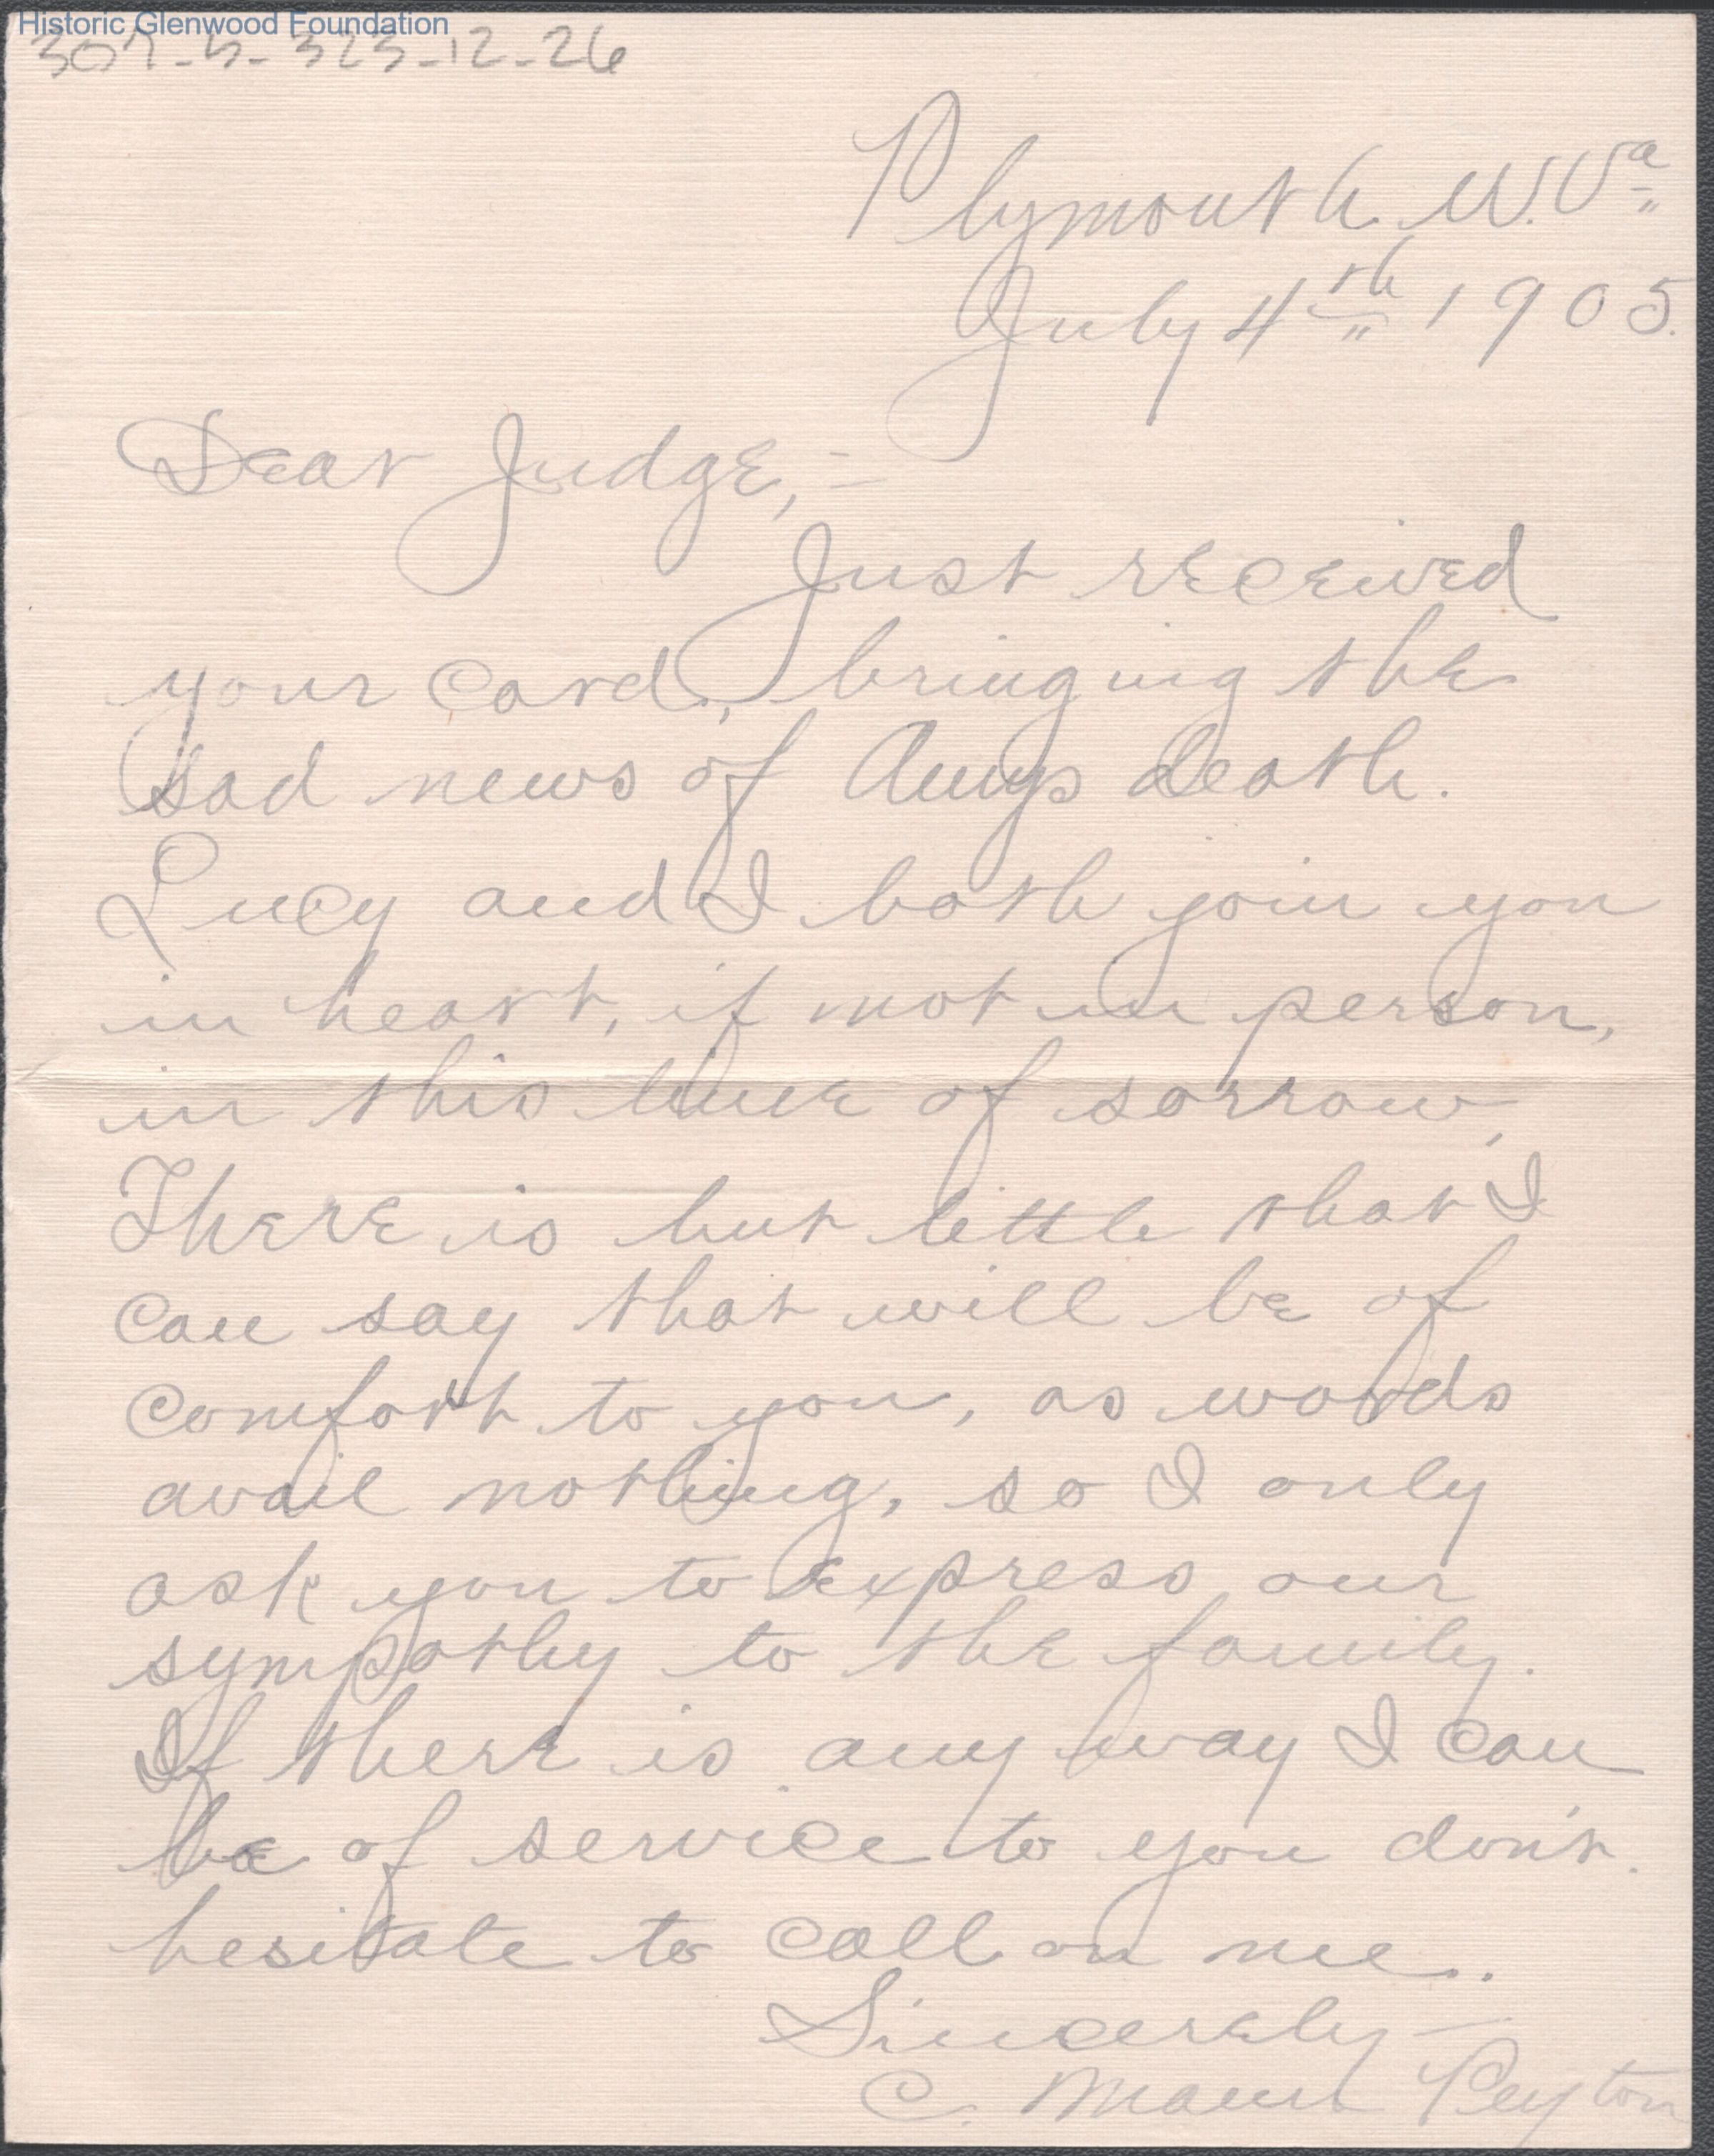 Historic Glenwood Foundation
307-5-323-12-26
Plymouth W.Va
July 4th 1905.
Dear Judge,-
Just received
your card, bringing the
sad news of Amys death.
Lucy and I both join you
in heart, if not in person,
in this time of sorrow,
There is but little that I
can say that will be of
comfort to you, as words
avail nothing, so I only
ask you to express our
sympathy to the family.
If there is any way I can
be of service to you don't
hesitate to call on me.
Sincerely-
C. Mann Peyton